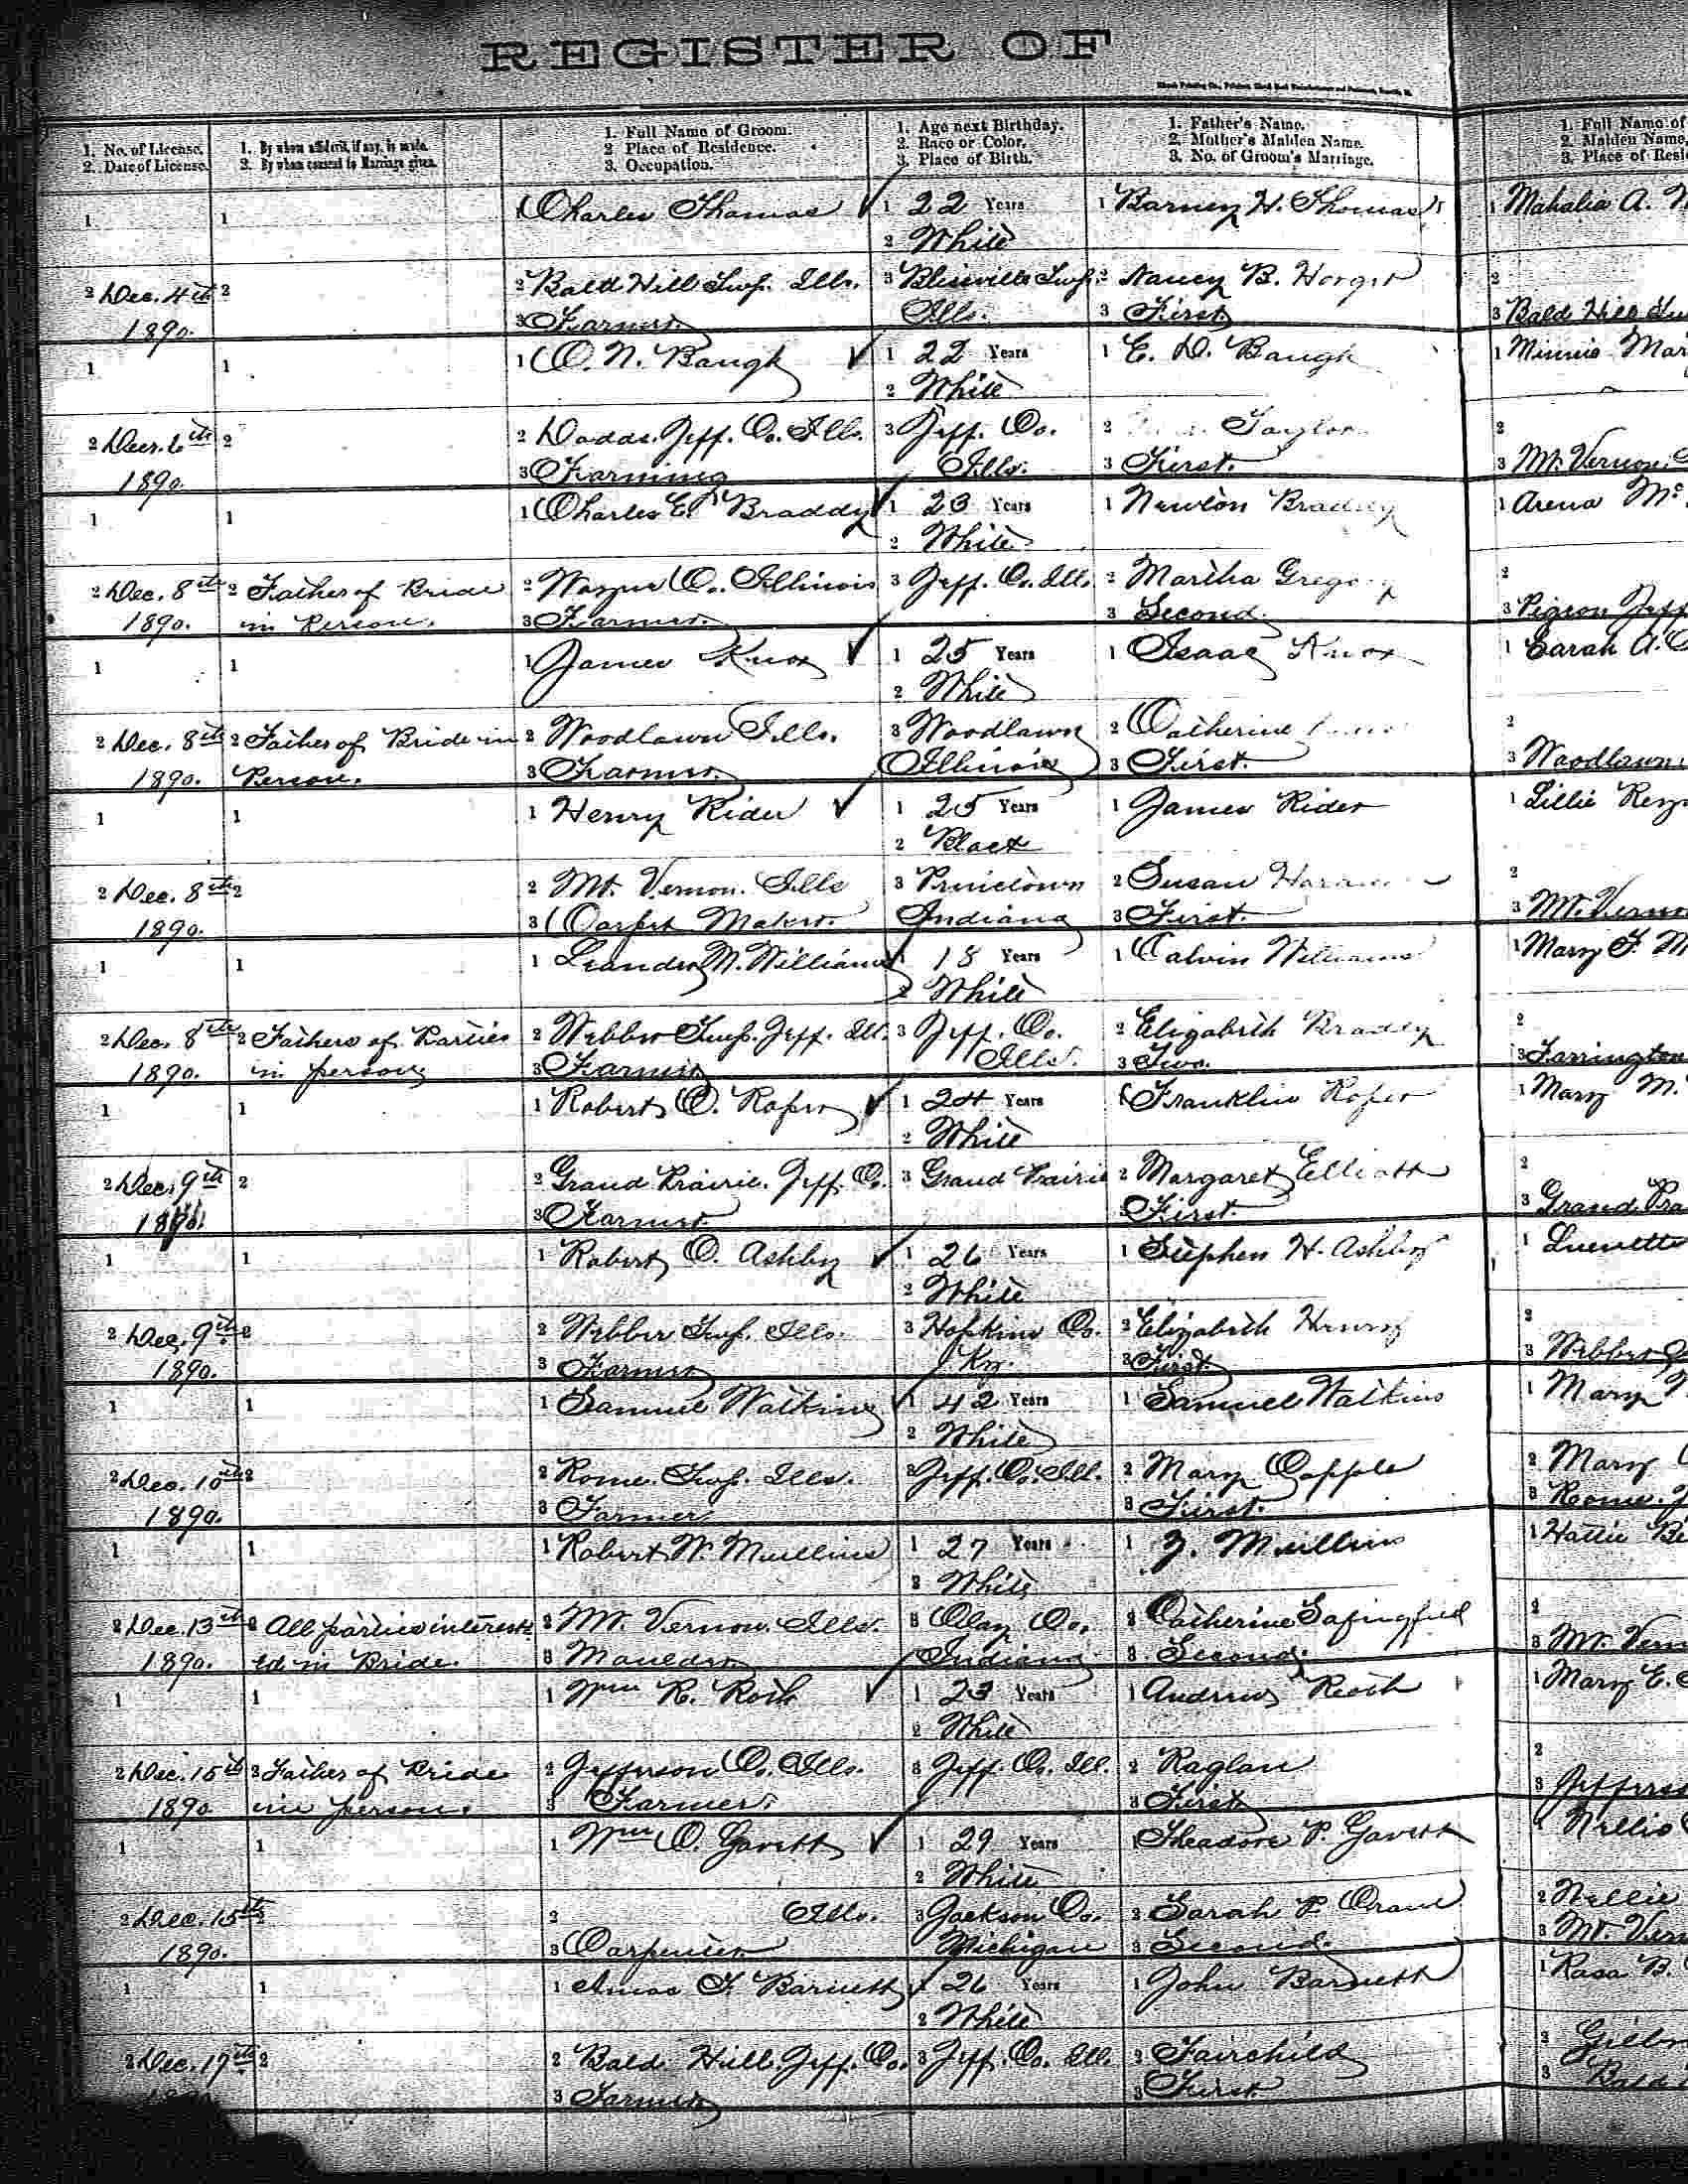 REGISTER OF
1. No. of License.
2. Date of License.
1. By whom affidavit, if any, is made.
2. By whom consent to Marriage given.
1. Full Name of Groom.
2 Place of Residence.
3. Occupation.
1. Age next Birthday.
2. Race or Color.
3. Place of Birth.
1. Father's Name.
2. Mother's Maiden Name.
3. No. of Groom's Marriage.
1. Full Name of
2. Maiden Name,
3. Place of Resi
1 1 1 Charles Thomas 1 22 Years 1 Barney H. Thomas 1 Mahalia A.
2 White
2 Dec. 4th 2 2 Bald Hill Twp. Ills. 3 Blissville Twp. 2 Nancy B. 2
1890. 3 Farmer. Ills. 3 First 3 Bald Hill
1 1 1 O. N. Baugh 1 22 Years 1 E. D. Baugh 1 Minnie Mar
2 White
2 Dec. 6th 2 2 Dodds. Jeff. Co. Ills. 3 Jeff. Co. 2 Taylor 2
1890. 3 Farming Ills. 3 First. 3 Mt. Vernon
1 1 1 Charles E. Braddy 1 23 Years 1 Newton Braddy 1 Arena Mc
2 White
2 Dec. 8th 2 Father of Bride 2 Wayne Co. Illinois 3 Jeff. Co. Ill. 2 Martha Gregory 2
1890. in Person. 3 Farmer. 3 Second. 3 Pigeon Jeff
1 1 1 James Knox 1 25 Years 1 Isaac Knox 1 Sarah A.
2 White
2 Dec. 8th 2 Father of Bride in 2 Woodlawn Ills. 3 Woodlawn 2 Catherine 2
1890. Person. 3 Farmer. Illinois 3 First. 3 Woodlawn
1 1 1 Henry Rider 1 25 Years 1 James Rider 1 Lillie Rey
2 Black
2 Dec. 8th 2 2 Mt. Vernon. Ills 3 Princtown 2 Susan 2
1890. 3 Carpet Maker. Indiana 3 First. 3 Mt. Verno
1 1 1 Leander M. Williams 1 18 Years 1 Calvin Williams 1 Mary F. M
2 White
2 Dec. 8th 2 Fathers of Parties 2 Webber Twp. Jeff. Ill. 3 Jeff. Co. 2 Elizabeth Braddy 2
1890. in person 3 Farmer Ills. 3 Two. 3 Farrington
1 1 1 Robert O. Roper 1 24 Years 1 Franklin Roper 1 Mary M.
2 White
2 Dec. 9th 2 2 Grand Prairie. Jeff. Co. 3 Grand Prairie 2 Margaret Elliott 2
1890. 3 Farmer 3 First. 3 Grand Pra
1 1 1 Robert O. Ashby 1 26 Years 1 Stephen H. Ashby 1
2 White
2 Dec. 9th 2 2 Webber Twp. Ills. 3 Hopkins Co. 2 Elizabeth Henry 2
1890. 3 Farmer Ky. 3 First. 3 Webber
1 1 1 Samuel Watkins 1 42 Years 1 Samuel Watkins 1 Mary
2 White
2 Dec. 10th 2 2 Rome. Twp. Ills. 3 Jeff. Co. Ill. 2 Mary Copple 2 Mary
1890. 3 Farmer 3 First. 3 Rome.
1 1 1 Robert W. Mullins 1 27 Years 1 Z. Mullins 1 Hattie Be
2 White
2 Dec. 13th 2 All parties interest- 2 Mt. Vernon. Ills. 3 Clay Co. 2 Catherine 2
1890. ed in Bride. 3 Indiana 3 Second. 3 Mt. Vern
1 1 1 Wm R. Roth 1 23 Years 1 Andrew Roth 1 Mary E.
2 White
2 Dec. 15th 2 Father of Bride 2 Jefferson Co. Ills. 3 Jeff. Co. Ill. 2 Raglan 2
1890 in person. 3 Farmer. 3 First 3 Jefferso
1 1 1 Wm O. Gavett 1 29 Years 1 Theadore P. Gavett 1 Nellie
2 White
2 Dec. 15th 2 2 Ills. 3 Jackson Co. 2 Sarah P. 2 Nellie
1890. 3 Carpenter Michigan 3 Second. 3 Mt. Vern
1 1 1 Amos F. Barnett 1 26 Years 1 John Barnett 1 Rosa B.
2 White
2 Dec. 17th 2 2 Bald Hill. Jeff. Co. 3 Jeff. Co. Ill. 2 Fairchild 2
3 Farmer 3 First 3 Bald